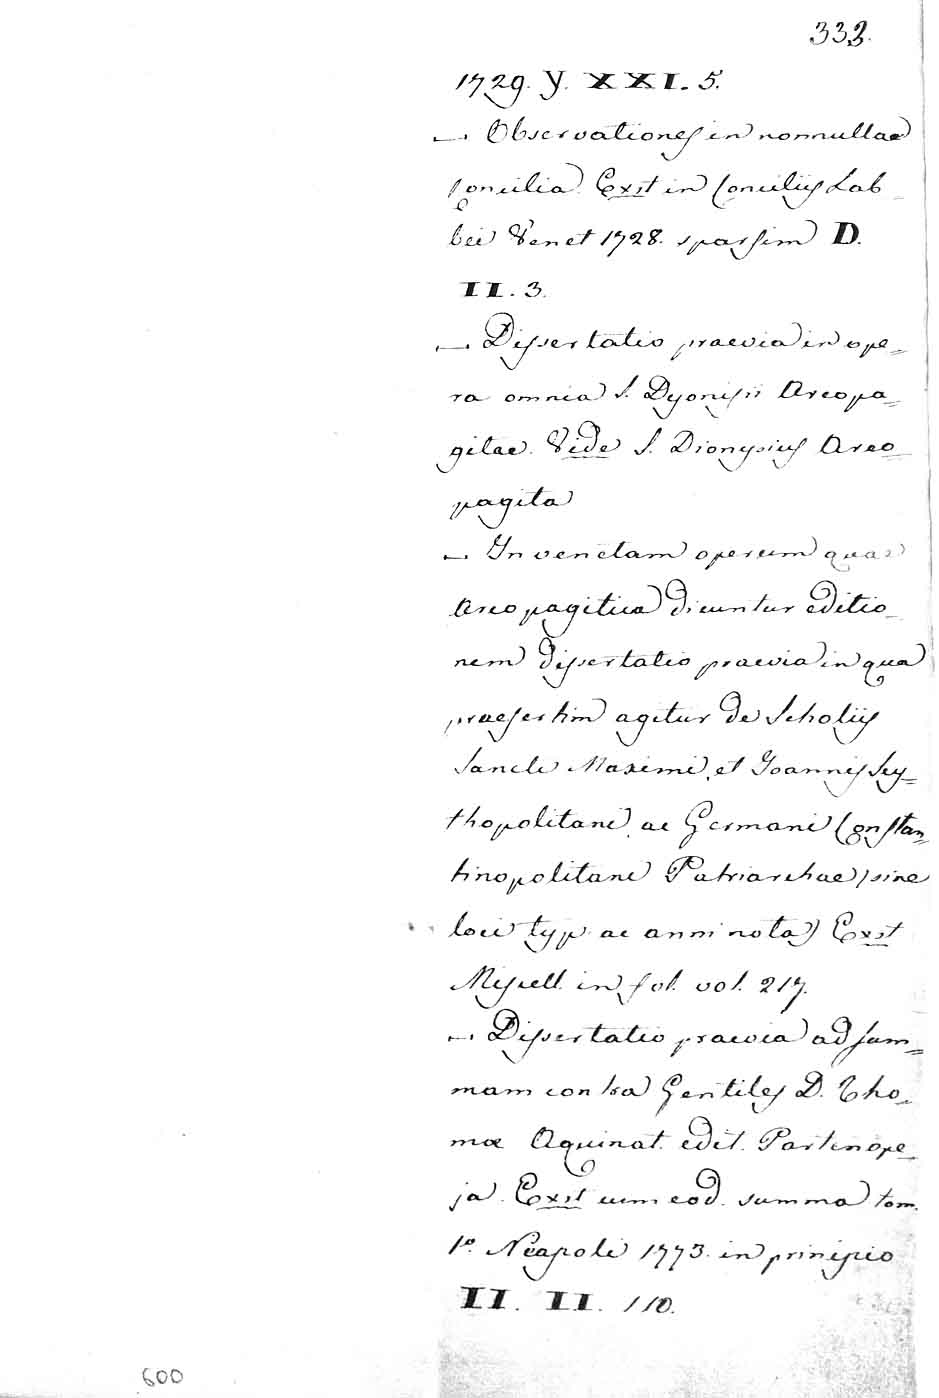 333.
1729. Y. XXI. 5.
— Observationes in nonnullae
concilia. Exst in Conciliis Lab-
bei Venet 1728. sparsim D.
II. 3.
— Dissertatio praevia in ope=
ra omnia S. Dyonisii Areopa=
gitae. Vide S. Dionysius Areo-
pagita
— In venetam operum quae
Areopagitica dicuntur editio-
nem dissertatio praevia in qua
praesertim agitur de Scholiis
Sancti Maximi, et Joannis Scy=
thopolitani, ac Germani Constan=
tinopolitani Patriarchae) sine
loci typ. ac anni nota) Exst
Miscell. in fol. vol. 217.
— Dissertatio praevia ad sum=
mam contra Gentiles D. Tho-
mae Aquinat. edit. Partenope-
ja. Exst cum eod. summa tom.
1º. Neapoli 1773. in principio
II. II. 110.
600